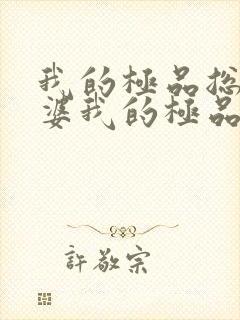 我的極品總
婆我的極品
許敬宗